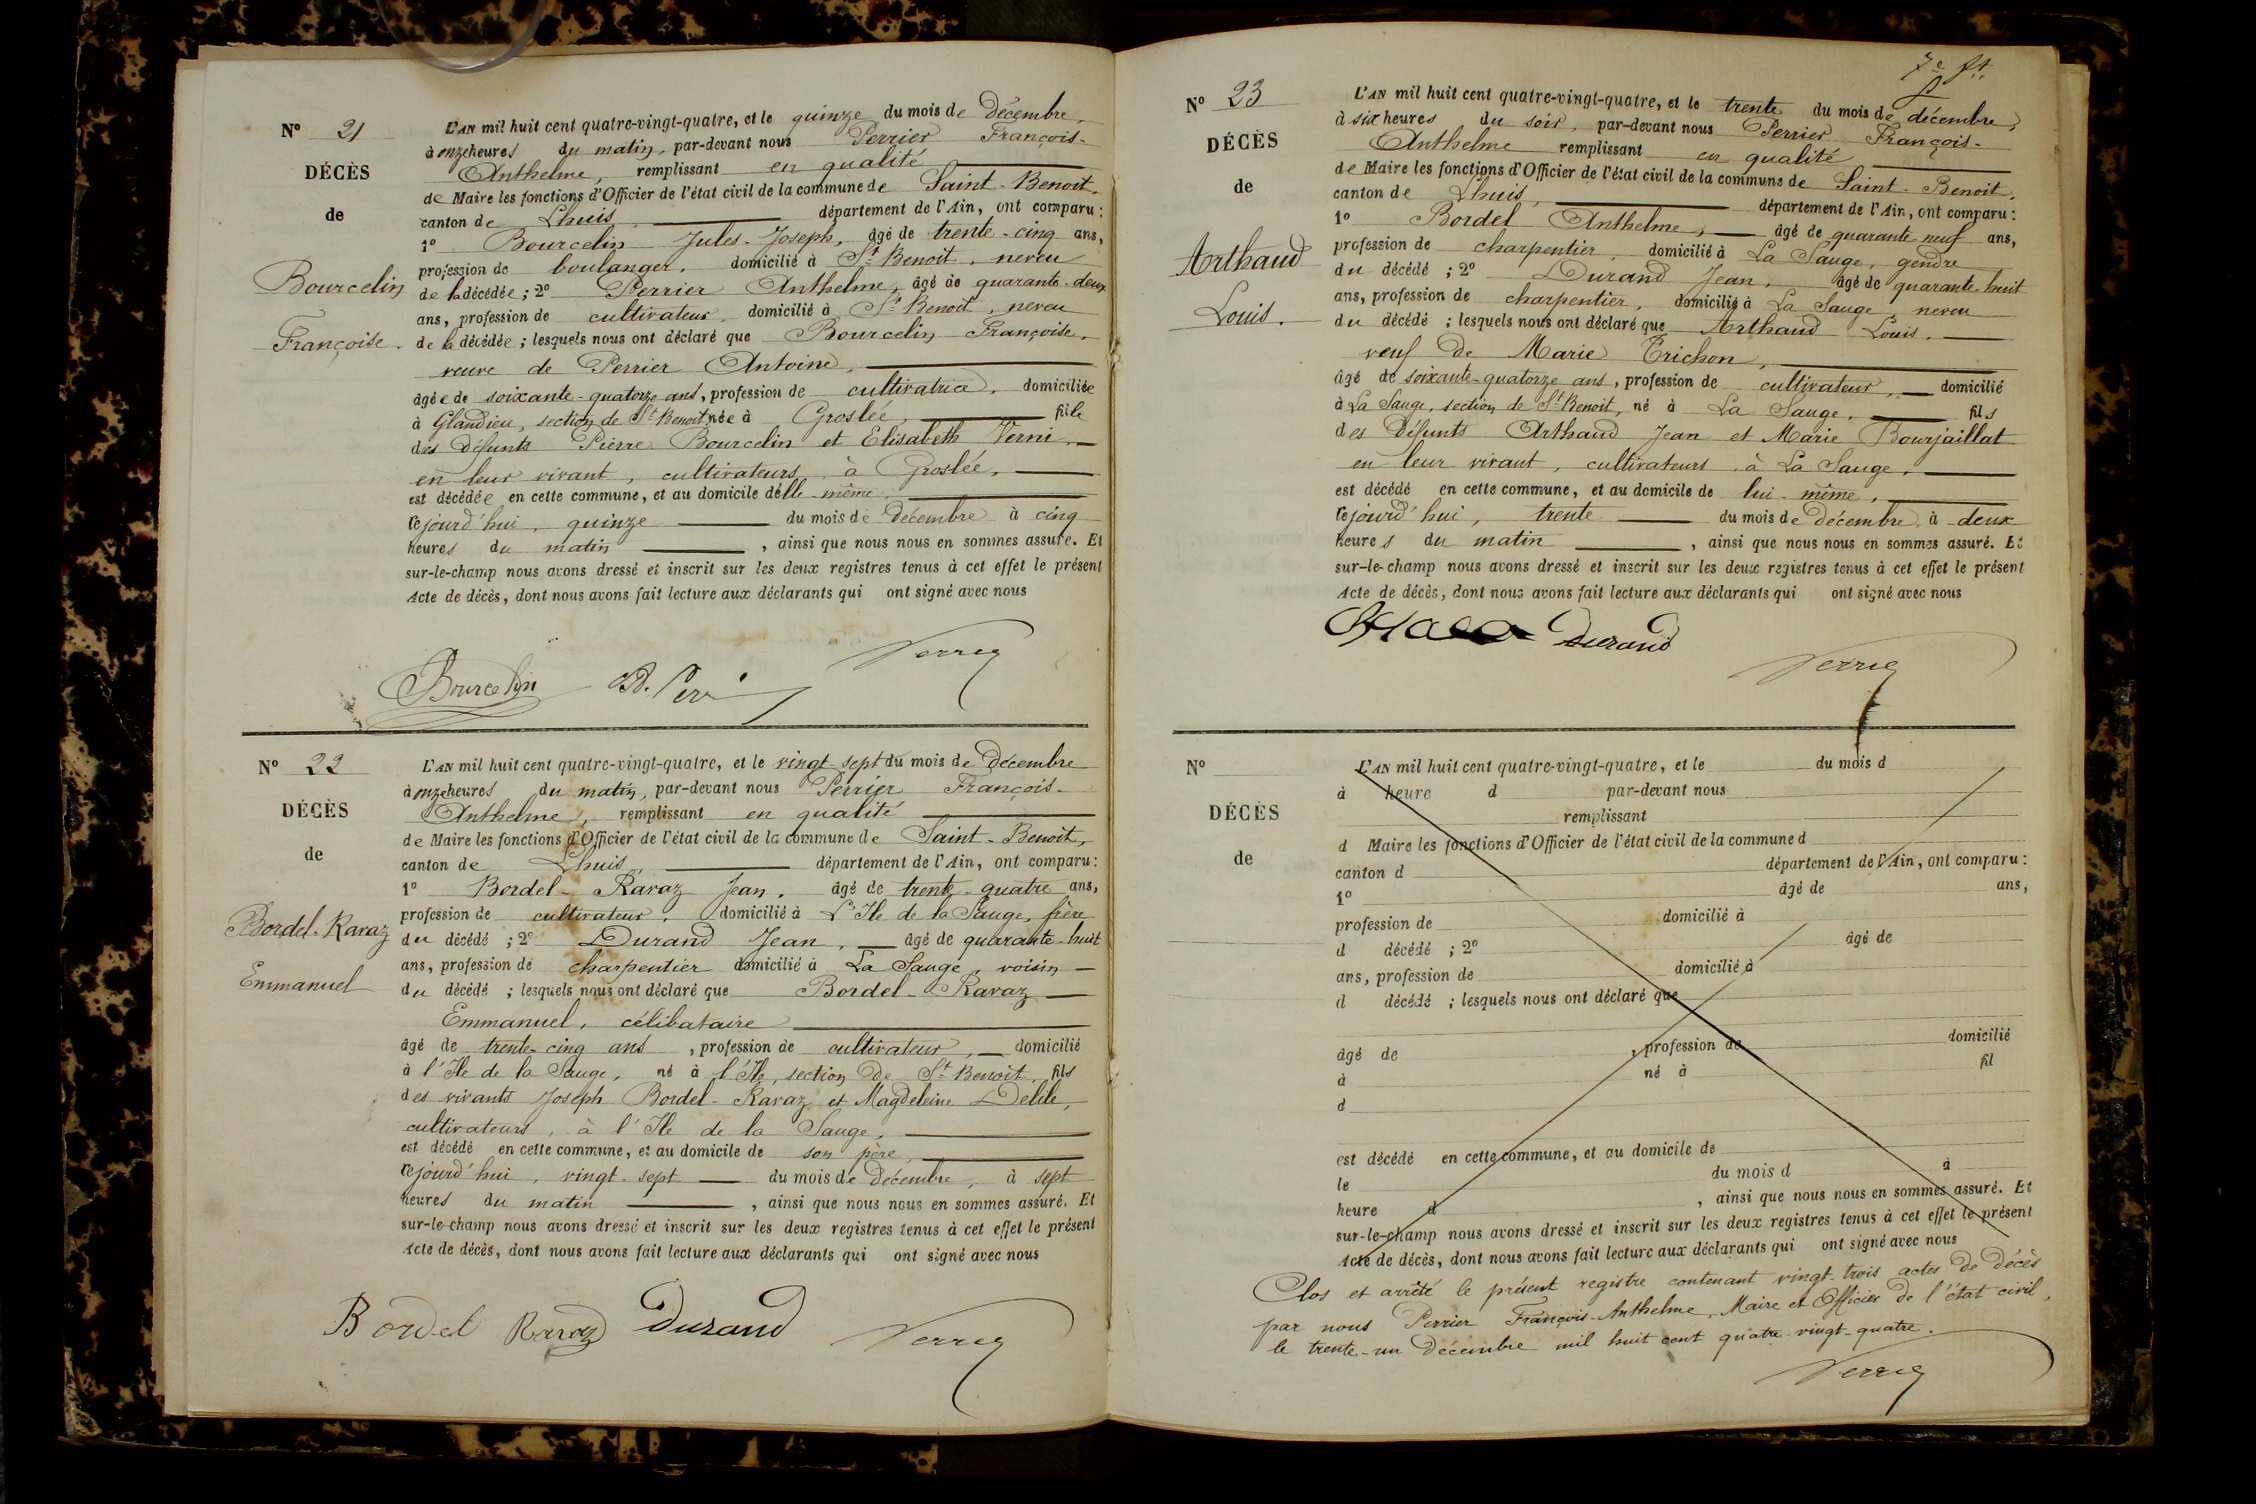 N° 21
DÉCÈS
de
Bourcelin
Françoise.
L'AN mil huit cent quatre-vingt-quatre, et le quinze du mois de Décembre,
à onze heures du matin, par-devant nous Perrier François-
Anthelme, remplissant en qualité
de Maire les fonctions d'Officier de l'état civil de la commune de Saint-Benoit,
canton de Lhuis, département de l'Ain, ont comparu :
1° Bourcelin Jules-Joseph, âgé de trente-cinq ans,
profession de boulanger, domicilié à St Benoit, neveu
de la décédée ; 2° Perrier Anthelme, âgé de quarante-deux
ans, profession de cultivateur, domicilié à St Benoit, neveu
de la décédée ; lesquels nous ont déclaré que Bourcelin Françoise,
veuve de Perrier Antoine,
âgée de soixante-quatorze ans, profession de cultivatrice, domiciliée
à Glandieu, section de St Benoit, née à Groslée, fille
des défunts Pierre Bourcelin et Elisabeth Verni,
en leur vivant, cultivateurs à Groslée,
est décédée en cette commune, et au domicile d'elle même,
cejourd'hui, quinze du mois de Décembre à cinq
heures du matin, ainsi que nous nous en sommes assuré. Et
sur-le-champ nous avons dressé et inscrit sur les deux registres tenus à cet effet le présent
Acte de décès, dont nous avons fait lecture aux déclarants qui ont signé avec nous
Bourcelin Perrier
N° 22
DÉCÈS
de
Bordel-Ravaz
Emmanuel
L'AN mil huit cent quatre-vingt-quatre, et le vingt-sept du mois de Décembre
à onze heures du matin, par-devant nous Perrier François-
Anthelme, remplissant en qualité
de Maire les fonctions d'Officier de l'état civil de la commune de Saint-Benoit,
canton de Lhuis, département de l'Ain, ont comparu :
1° Bordel-Ravaz Jean, âgé de trente-quatre ans,
profession de cultivateur, domicilié à L'Ile de la Sauge, frère
du décédé ; 2° Durand Jean, âgé de quarante-huit
ans, profession de charpentier domicilié à La Sauge, voisin
du décédé ; lesquels nous ont déclaré que Bordel-Ravaz
Emmanuel, célibataire
âgé de trente-cinq ans, profession de cultivateur, domicilié
à l'Ile de la Sauge, né à l'Ile, section de St Benoit, fils
des vivants Joseph Bordel-Ravaz et Magdeleine Delile,
cultivateurs, à l'Ile de la Sauge,
est décédé en cette commune, et au domicile de son père,
cejourd'hui, vingt-sept du mois de Décembre, à sept
heures du matin, ainsi que nous nous en sommes assuré. Et
sur-le-champ nous avons dressé et inscrit sur les deux registres tenus à cet effet le présent
Acte de décès, dont nous avons fait lecture aux déclarants qui ont signé avec nous
Bordel Ravaz Durand Perrier
N° 23
DÉCÈS
de
Arthaud
Louis.
L'AN mil huit cent quatre-vingt-quatre, et le trente du mois de décembre,
à six heures du soir, par-devant nous Perrier François-
Anthelme remplissant en qualité
de Maire les fonctions d'Officier de l'état civil de la commune de Saint-Benoit,
canton de Lhuis, département de l'Ain, ont comparu :
1° Bordel Anthelme, âgé de quarante neuf ans,
profession de charpentier, domicilié à La Sauge, gendre
du décédé ; 2° Durand Jean, âgé de quarante-huit
ans, profession de charpentier, domicilié à La Sauge neveu
du décédé ; lesquels nous ont déclaré que Arthaud Louis,
veuf de Marie Trichon,
âgé de soixante-quatorze ans, profession de cultivateur, domicilié
à La Sauge, section de St Benoit, né à La Sauge, fils
des défunts Arthaud Jean et Marie Bourjaillat
en leur vivant, cultivateurs à La Sauge,
est décédé en cette commune, et au domicile de lui-même,
cejourd'hui, trente du mois de Décembre, à deux
heures du matin, ainsi que nous nous en sommes assuré. Et
sur-le-champ nous avons dressé et inscrit sur les deux registres tenus à cet effet le présent
Acte de décès, dont nous avons fait lecture aux déclarants qui ont signé avec nous
Durand Perrier
N°
DÉCÈS
de
L'AN mil huit cent quatre-vingt-quatre, et le du mois d
à heure d par-devant nous
remplissant
d Maire les fonctions d'Officier de l'état civil de la commune d
canton d département de l'Ain, ont comparu :
1° âgé de ans,
profession de domicilié à
d décédé ; 2° âgé de
ans, profession de domicilié à
d décédé ; lesquels nous ont déclaré que
âgé de , profession de domicilié
à né à fil
d
est décédé en cette commune, et au domicile de
le du mois d à
heure d , ainsi que nous nous en sommes assuré. Et
sur-le-champ nous avons dressé et inscrit sur les deux registres tenus à cet effet le présent
Acte de décès, dont nous avons fait lecture aux déclarants qui ont signé avec nous
Clos et arrêté le présent registre contenant vingt-trois actes de décès
par nous Perrier François-Anthelme, Maire et Officier de l'état civil,
le trente-un Décembre mil huit cent quatre-vingt-quatre.
Perrier